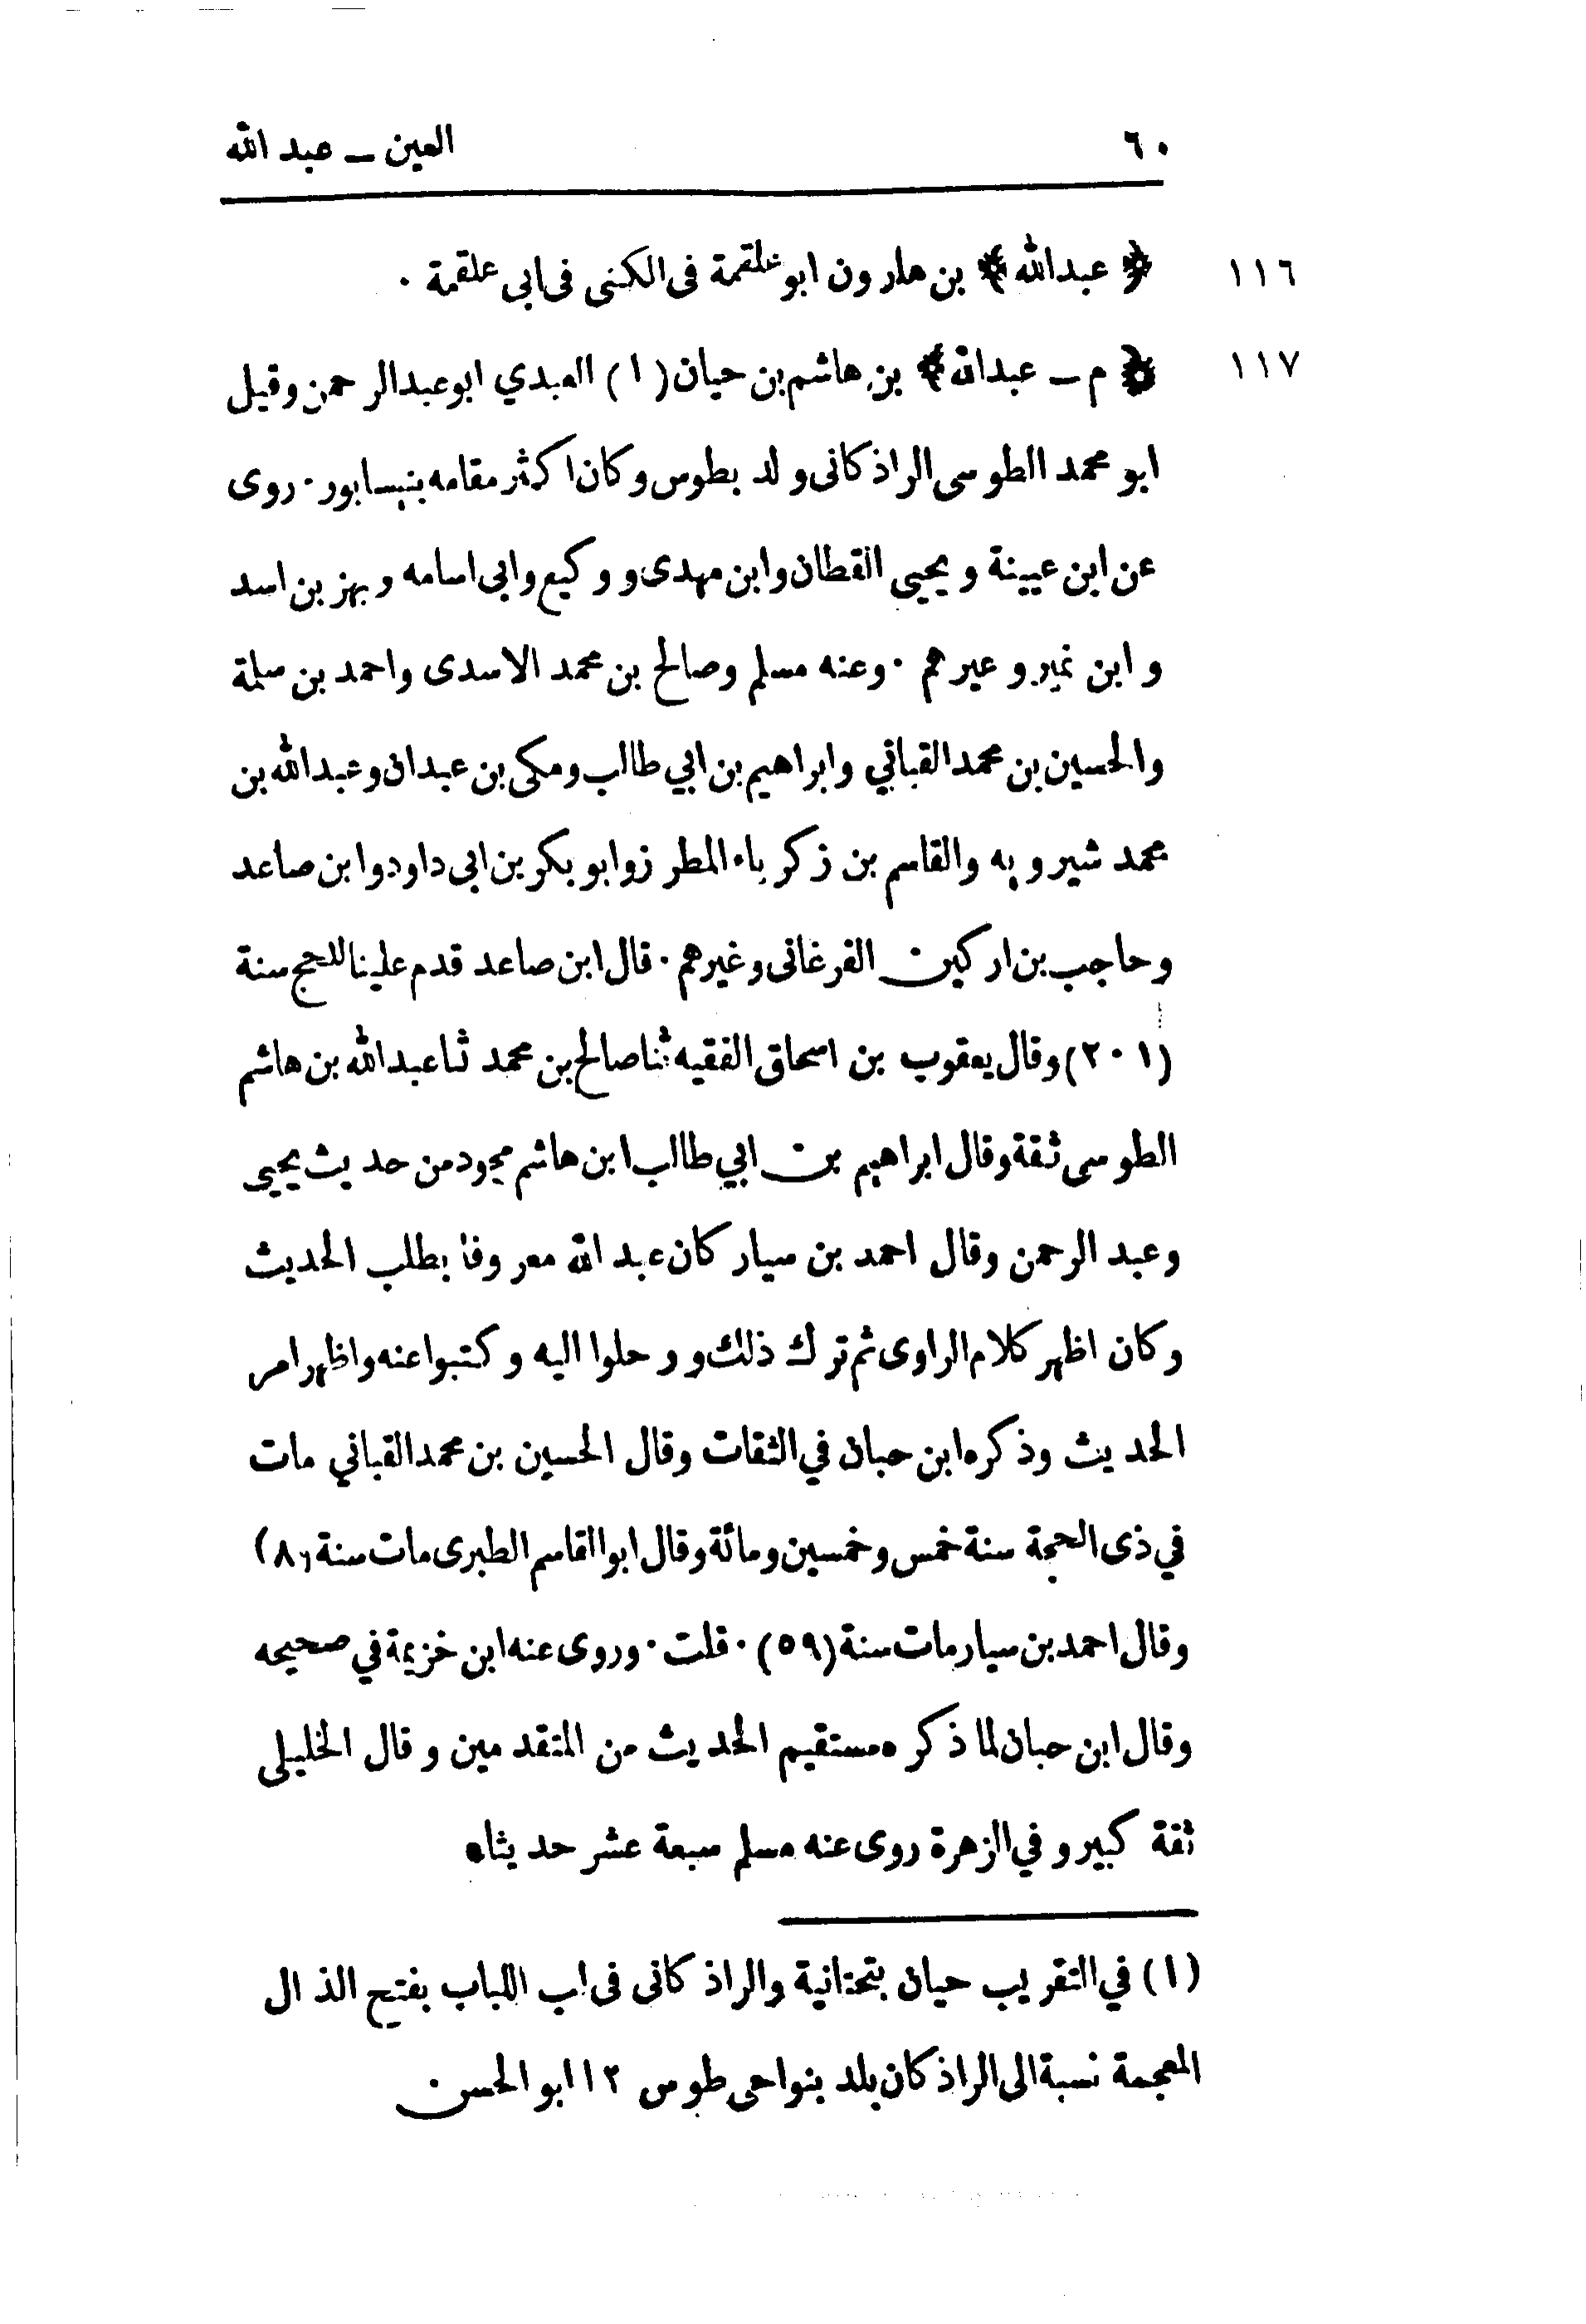 ٦٠ العين ــ عبد الله
١١٦ ﴿ عبدالله ﴾ بن هارون ابو علقمة فى الكنى فى ابى علقمة ٠
١١٧ ﴿ م ــ عبدالله ﴾ بن هاشم بن حيان (١) العبدي ابو عبد الرحمن وقيل
ابو محمد الطوسى الراذكانى ولد بطوس وكان اكثر مقامه بنيسابور ٠ روى
عن ابن عيينة ويحيى القطان وابن مهدى ووكيع وابى اسامه وبهز بن اسد
وابن نمير وعيرهم ٠ وعنه مسلم وصالح بن محمد الاسدى واحمد بن سلمة
والحسين بن محمد القبانى وابراهيم بن ابي طالب ومكى بن عبدان وعبد الله بن
محمد شيرويه والقاسم بن زكرياء المطرز وابو بكر بن ابى داود وابن صاعد
وحاجب بن اركين الفرغانى وغيرهم ٠ قال ابن صاعد قدم علينا للحج سنة
(٢٠١) وقال يعقوب بن اسحاق الفقيه ثنا صالح بن محمد ثنا عبد الله بن هاشم
الطوسى ثقة وقال ابراهيم بن ابي طالب ابن هاشم مجود من حديث يحيى
وعبد الرحمن وقال احمد بن سيار كان عبد الله معروفا بطلب الحديث
وكان اظهر كلام الراوى ثم ترك ذلك ورحلوا اليه وكتبوا عنه واظهر امر
الحديث وذكره ابن حبان في الثقات وقال الحسين بن محمد القباني مات
في ذى الحجة سنة خمس وخمسين ومائة وقال ابو القاسم الطبرى مات سنة (٨)
وقال احمد بن سيار مات سنة (٥٩) ٠ قلت ٠ وروى عنه ابن خزيمة في صحيحه
وقال ابن حبان لما ذكره مستقيم الحديث من المتقدمين وقال الخليلى
ثقة كبير و في الزهرة روى عنه مسلم سبعة عشر حديثا ٠
(١) في التقريب حيان بتحتانية والراذكانى فى لب اللباب بفتح الذال
المعجمة نسبة الى الراذكان بلد بنواحى طوس ١٢ ابو الحسن